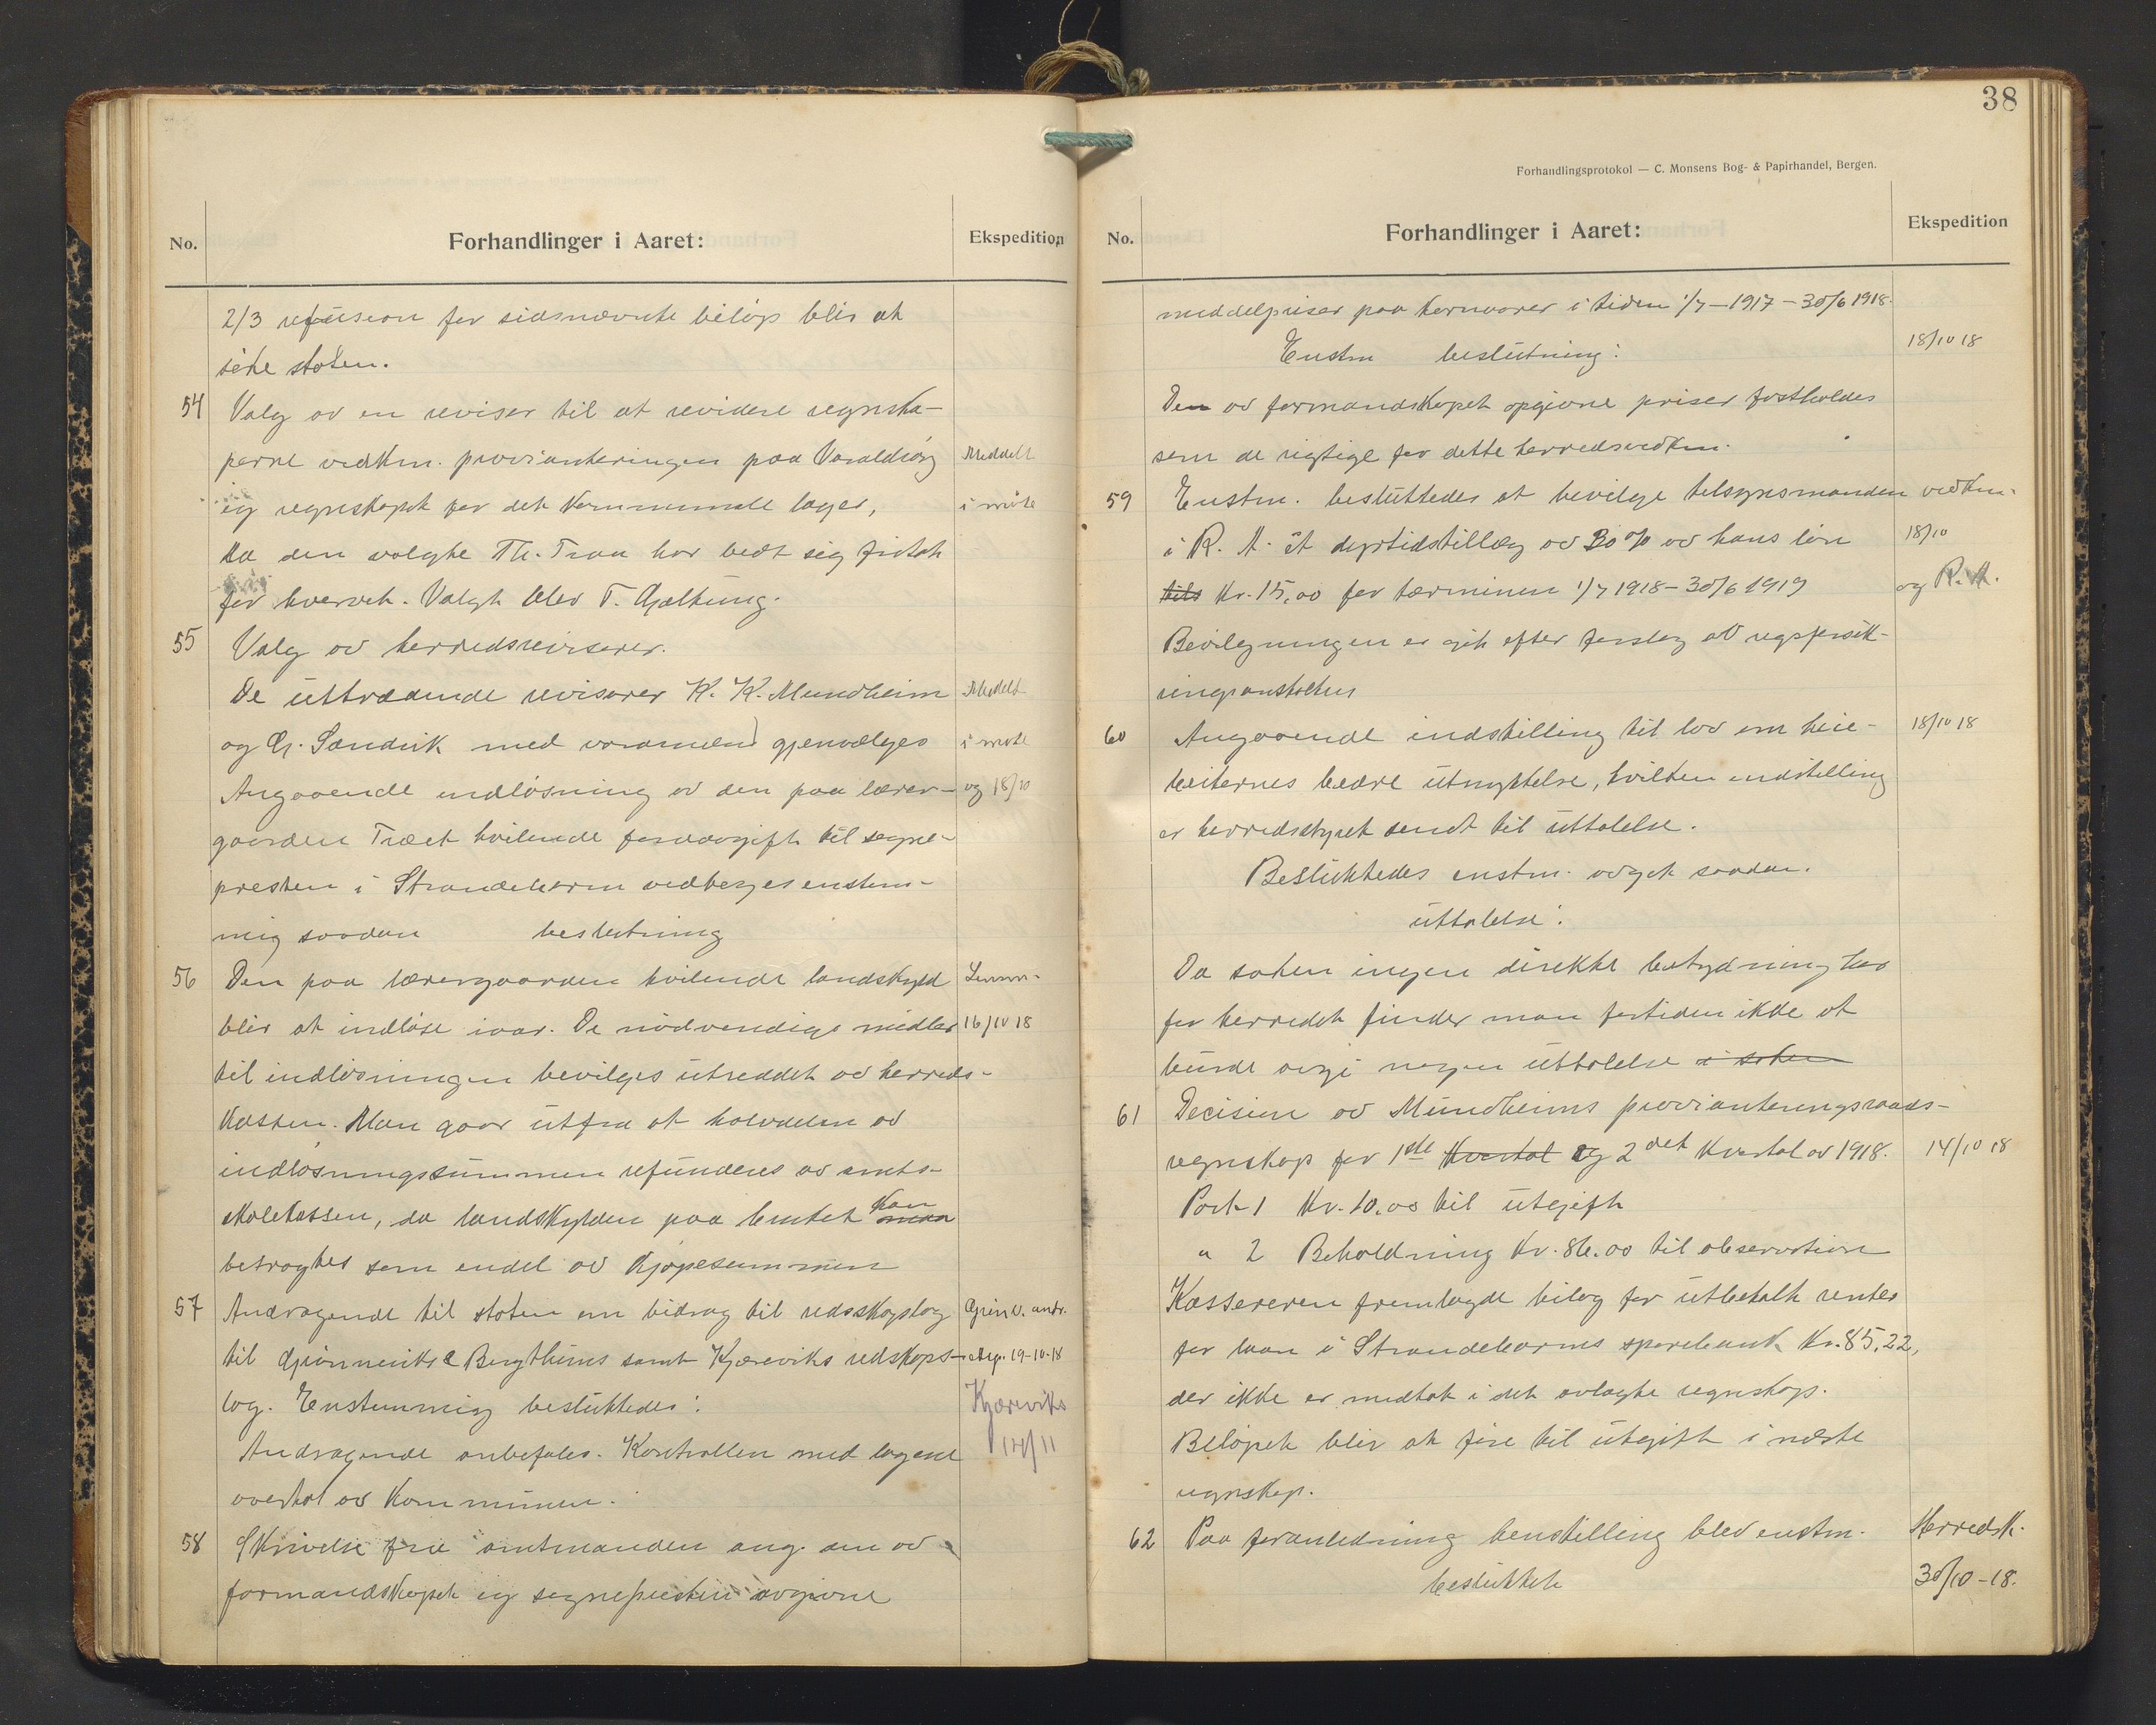 No.
Forhandlinger i Aaret:
Ekspedition
2/3 refusion for sidsnævnte beløp blir at
søke staten.
54 Valg av en revisor til at revidere regnska-
perne vedkm. provianteringen paa Varaldsøy Meddelt
og regnskapet for det kommunale lager, i møte
da den valgte Th. Traa har bedt sig fritat
for hvervet. Valgt blev T. Gjeltung.
55 Valg av herredsrevisorer.
De uttrædende revisorer K. K. Mundheim Meddelt
og G. Sandvik med varamænd gjenvælges i møte
Angaaende indløsning av den paa lærer- og 18/10
gaarden Træet hvilende avgift til sogne-
presten i Strandebarm vedtoges enstem-
mig saadan beslutning
56 Den paa lærergaarden hvilende landskyld
blir at indløse ivaar. De nødvendige midler 16/10 18
til indløsningen bevilges utreddet av herreds-
kassen. Man gaar utfra at halvdelen av
indløsningssummen refunderes av amts-
skolekassen, da landskylden paa bruket kan maa
betragtes som endel av kjøpesummen
57 Andragende til staten om bidrag til redskapslag
til Grønneviks & Bergthuns samt Kjæreviks redskaps- 19-10-18
lag. Enstemmig besluttedes: Kjæreviks
Andragende anbefales. Kontrollen med lagene 14/11
overtat av Kommunen.
58 Skrivelse fra amtmanden ang. om av
formandskapet og sognepresten avgivne
38
Forhandlingsprotokol — C. Monsens Bog- & Papirhandel, Bergen.
No.
Forhandlinger i Aaret:
Ekspedition
middelpriser paa kornvarer i tiden 1/7-1917-30/6 1918.
Enstm beslutning: 18/10 18
Den av formandskapet opgivne priser fastholdes
som de rigtige for dette herredsvedkm.
59 Enstm. besluttedes at bevilge tilsynsmanden vedkm.
i R. A. et dyrtidstillæg av 30 % av hans løn 18/10
tils Kr. 15,00 for terminen 1/7 1918-30/6 1919 og R. A.
Bevilgningen er git efter forslag av
ringsanstalten
60 Angaaende indstilling til lov om heie- 18/10 18
beiternes bedre utnyttelse, hvilken indstilling
er herredsstyret sendt til uttalelse.
Besluttedes enstm. avgit saadan.
uttalelse:
Da saken ingen direkte betydning har
for herredet finder man fortiden ikke at
burde avgi nogen uttalelse i saken
61 Decision av Mundheims provianteringsraads-
regnskap for 1ste Kvartal og 2det Kvartal av 1918. 14/10 18
Post 1 Kr. 10.00 til utgift
" 2 Beholdning Kr. 86.00 til observation
Kassereren fremlagde bilag for utbetalt renter
for laan i Strandebarms sparebank Kr. 85,22,
der ikke er medtat i det avlagte regnskap.
Beløpet blir at føre til utgift i næste
regnskap.
62 Paa foranledning henstilling blev enstm. Herredsk.
besluttet 30/10-18.